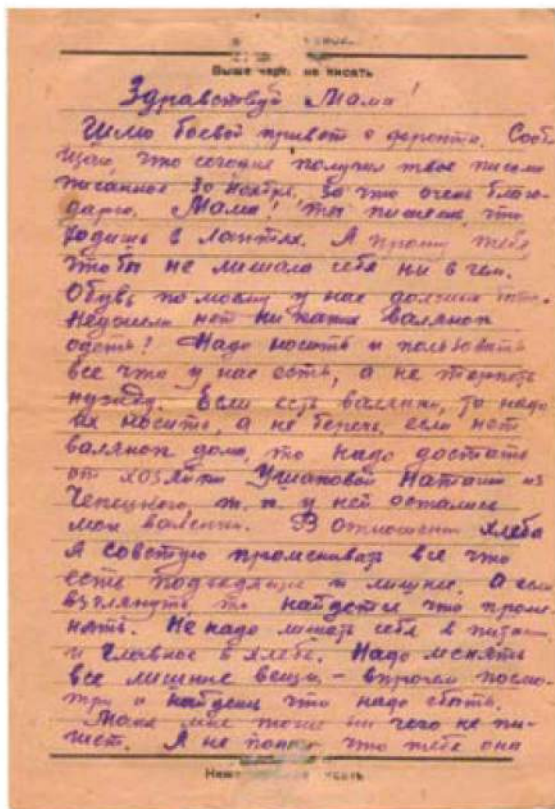 Выше черты не писать
Здравствуй Мама!
Шлю боевой привет с фронта. Сооб
щаю, что сегодня получил твое письмо
писанное 30 ноября, за что очень благо-
дарю. Мама! ты пишешь, что
ходишь в лаптях. Я прошу тебя,
чтобы не лишала себя ни в чем.
Обувь по моему у нас должна быть.
Неужели нет ни каких валянок
одеть! Надо носить и пользовать
все что у нас есть, а не терпеть
нужду. Если есть валянки, то надо
их носить, а не беречь, если нет
валянок дома, то надо достать
от хозяйки Ушаковой Наташи из
Чепецкого, т. к. у ней остались
мои валенки. В отношении хлеба
я советую променивать все что
есть подходящее и лишнее. А если
взглянуть то найдется что проме
нять. Не надо лишать себя в питании
и главное в хлебе. Надо менять
все лишние вещи – впрочем посмо-
три и найдешь что надо сбыть.
мне тоже ни чего не пи-
шет. Я не понял что тебе она
Ниже не писать